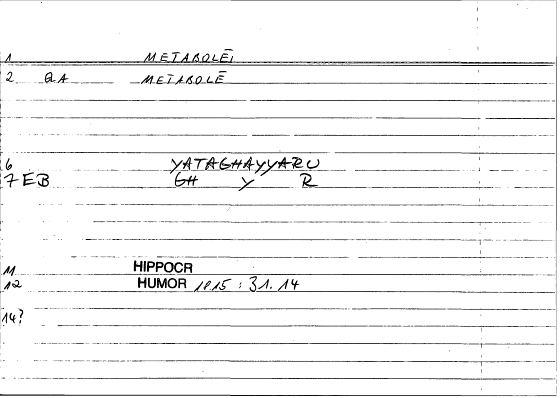 1 METABOLĒI
2 QA METABOLĒ
6 YATAGHAYYARU
7 EB GH Y R
11 HIPPOCR
12 HUMOR 1815 : 31.14
14?